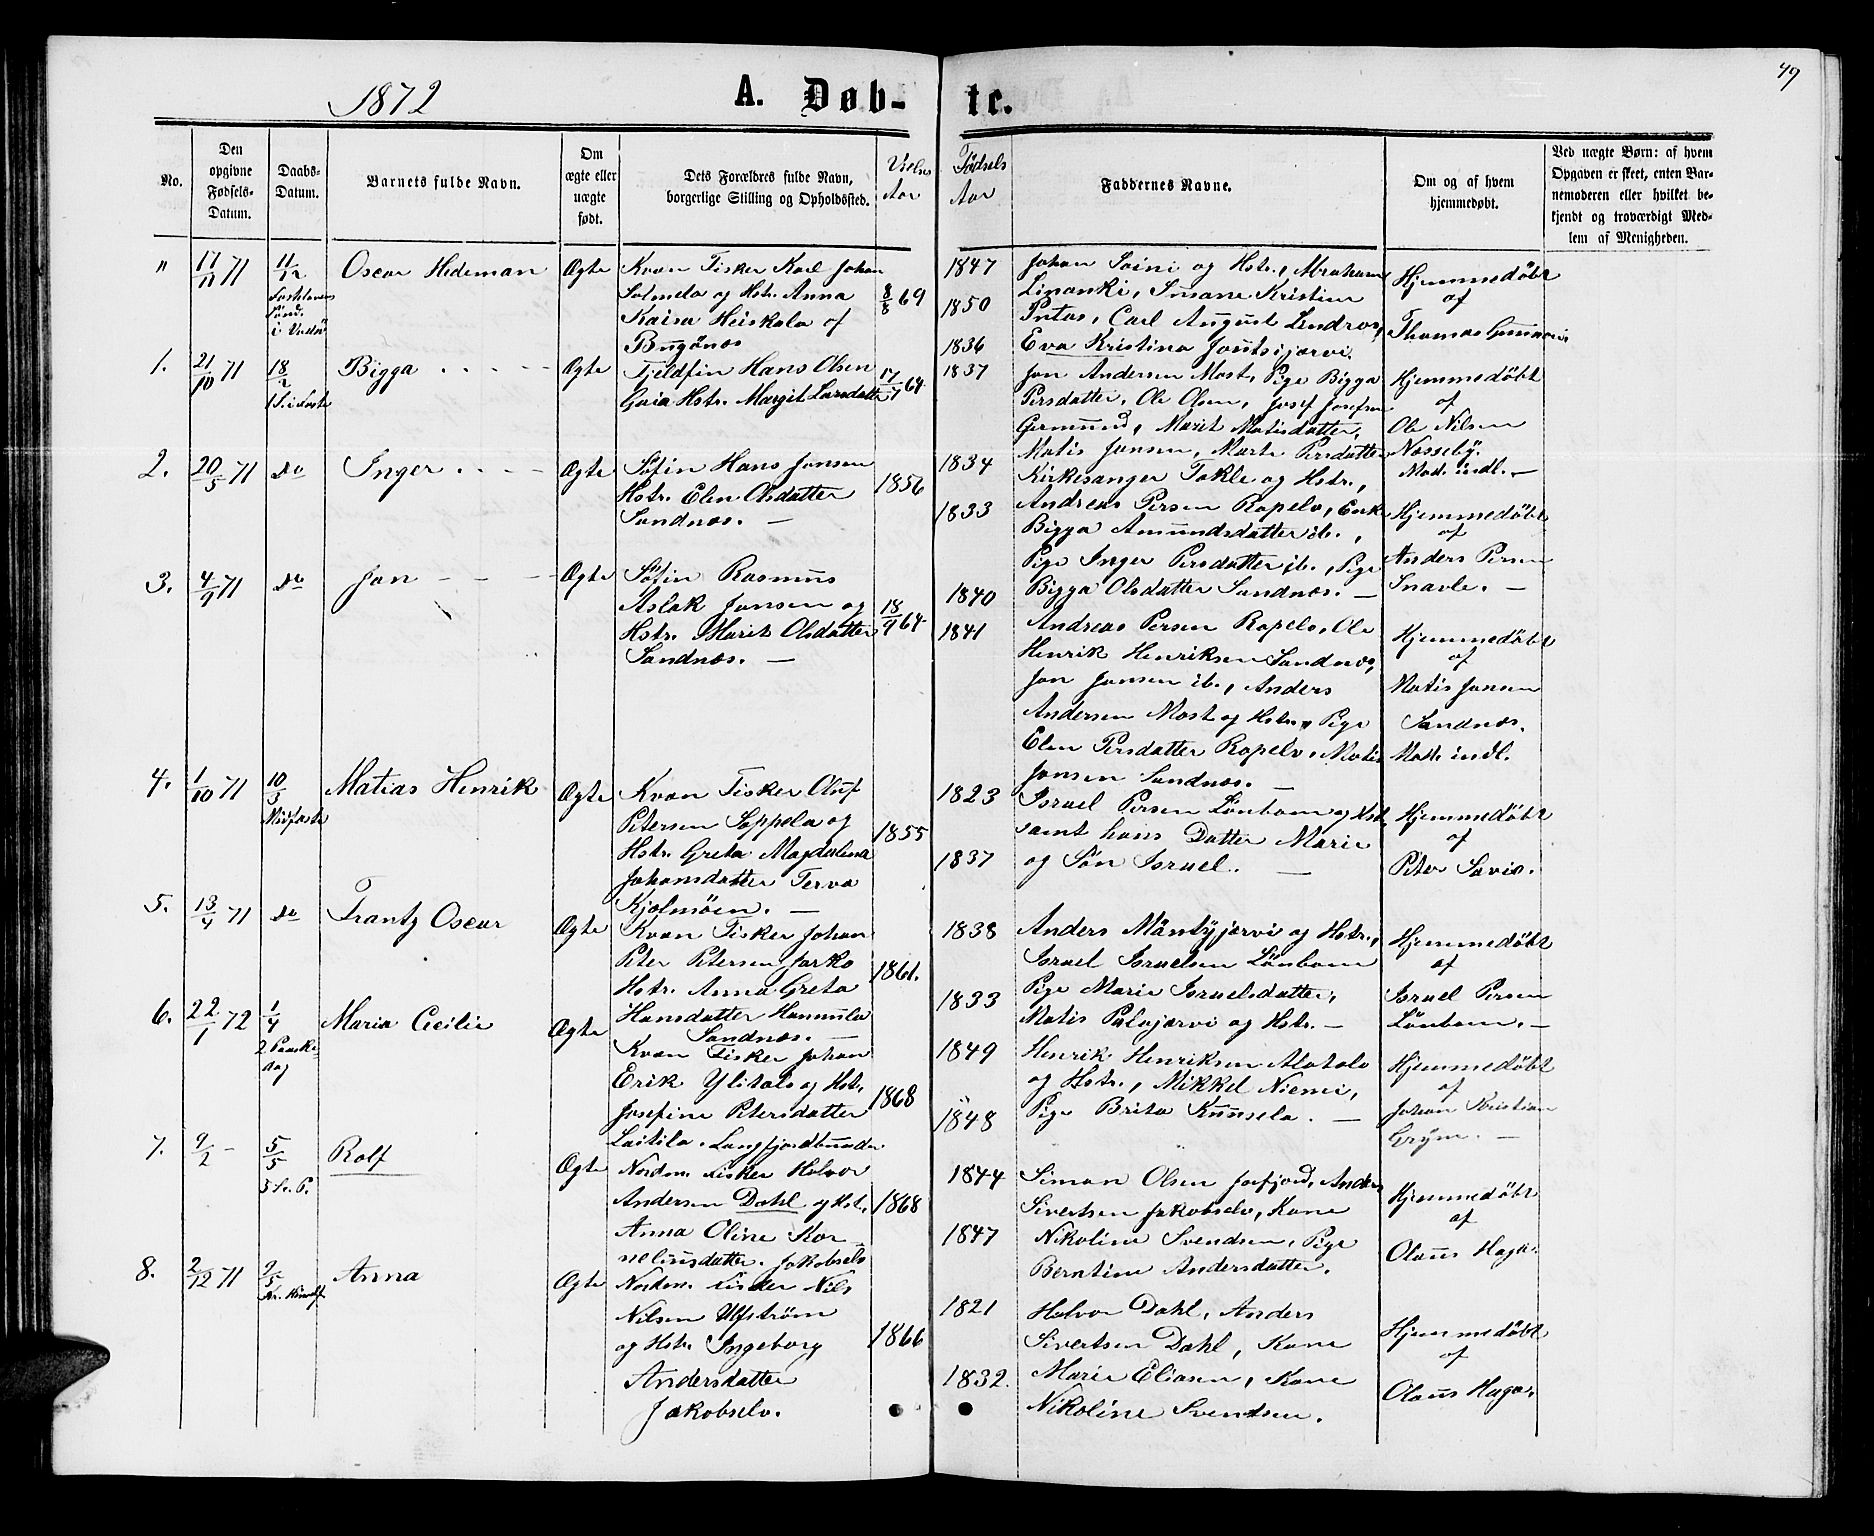 49
1872
A. Døb-
te.
No.
Den opgivne Fødsels-Datum.
Daabs-Datum.
Barnets fulde Navn.
Om ægte eller uægte født.
Dets Forældres fulde Navn, borgerlige Stilling og Opholdssted.
Vielses Aar
Fødsels Aar
Faddernes Navne.
Om og af hvem hjemmedøbt.
Ved uægte Børn: af hvem Opgaven er skeet, enten Barnemoderen eller hvilket bekjendt og troværdigt Medlem af Menigheden.
"
17/11 71
11/12
Fastelavens
Sønd.
i Vadsø
Oscar Hedeman
Ægte
Kvæn Fisker Karl Johan
Salmela og Hstr. Anna
Kaisa Heiskala af
Bugønæs
8/8 69
1847
1850
Johan Soini og Hstr., Abraham
Linanki, Susane Kristine
Pntas, Carl August Lindros,
Eva Kristina Jontsijarvi.
Hjemmedøbt
af
Thomas
1.
21/10 71
18/2
1 S. i Faste
Bigga
Ægte
Fjeldfin Hans Olsen
Gaia Hstr. Margit Larsdatter
17/7 64
1836
1837
Jon Andersen Most, Pige Bigga
Persdatter, Ole Olsen, Josef Josefsen
Germund, Marit Matisdatter,
Hjemmedøbt
af
Ole Nilsen
Næsseby.
Mod. indl. —
2.
20/5 71
do
Inger
Ægte
Søfin Hans Jonsen
Hstr. Elen Olsdatter
Sandnæs. —
1856
1834
1833
Matis Jonsen, Marte Persdatter
Kirkesanger Takle og Hstr.,
Andreas Persen Rapelv, Enke
Bigga Amundsdatter ib.,
Pige Inger Persdatter ib., Pige
Bigga Olsdatter Sandnæs. —
Hjemmedøbt
af
Anders Persen
Snavle. —
3.
4/9 71
do
Jon
Ægte
Søfin Rasmus
Aslak Jonsen og
Hstr. Marit Olsdatter
Sandnæs. —
18/9 64
1840
1841
Andreas Persen Rapelv, Ole
Henrik Henriksen Sandnæs,
Jon Jonsen ib., Anders
Andersen Most og Hstr., Pige
Elen Persdatter Rapelv, Matis
Jonsen Sandnæs. —
Hjemmedøbt
af
Matis Jonsen
Sandnæs.
Mod. indl.
4.
1/10 71
10/3
Midfaste
Matias Henrik
Ægte
Kvæn Fisker Oluf
Petersen Soppela og
Hstr. Greta Magdalena
Johansdatter Terva
Kjelmøen. —
1855
1823
1837
Israel Persen Lønbom og Hstr.
samt hans Datter Marie
og Søn Israel. —
Hjemmedøbt
af
Peter Savio.
5.
13/4 71
do
Frantz Oscar
Ægte
Kvæn Fisker Johan
Peter Petersen Jarko
Hstr. Anna Greta
Hansdatter Hannula
Sandnæs. —
1861.
1838
1833
Anders Mäntyjarvi og Hstr.,
Israel Israelsen Lönbom
Pige Marie Israelsdatter,
Matis Palojarvi og Hstr. —
Hjemmedøbt
af
Israel Persen
Lönbom. —
6.
22/1 72
1/4
2 Paaske-
dag
Maria Cecilie
Ægte
Kvæn Fisker Johan
Erik Ylitalo og Hstr.
Josefine Petersdatter
Laitila. Langfjordbunden
1868
1849
1848
Henrik Henriksen Alatalo
og Hstr., Mikkel Niemi,
Pige Brita Kuusela. —
Hjemmedøbt
af
Johan Kristian
Grym. —
7.
9/2 -
5/5
5 S. e. P.
Rolf
Ægte
Nordm. Fisker Halvor
Andersen Dahl og Hst.
Anna Oline Kor-
neliusdatter. Jakobselv
1868
1844
1847
Simon Olsen Jarfjord, Anders
Sivertsen Jakobselv, Kone
Nikoline Svendsen, Pige
Berntine Andersdatter.
Hjemmedøbt
af
Olaus Haga.
8.
2/12 71
9/5
Kr. Himmelf.
Anna
Ægte
Nordm. Fisker Nils
Nilsen Ulfstrøm
og Hstr. Ingeborg
Andersdatter
Jakobselv.
1866
1821
1832.
Halvor Dahl, Anders
Sivertsen Dahl, Kone
Marie Eliasen, Kone
Nikoline Svendsen.
Hjemmedøbt
af
Olaus Haga.